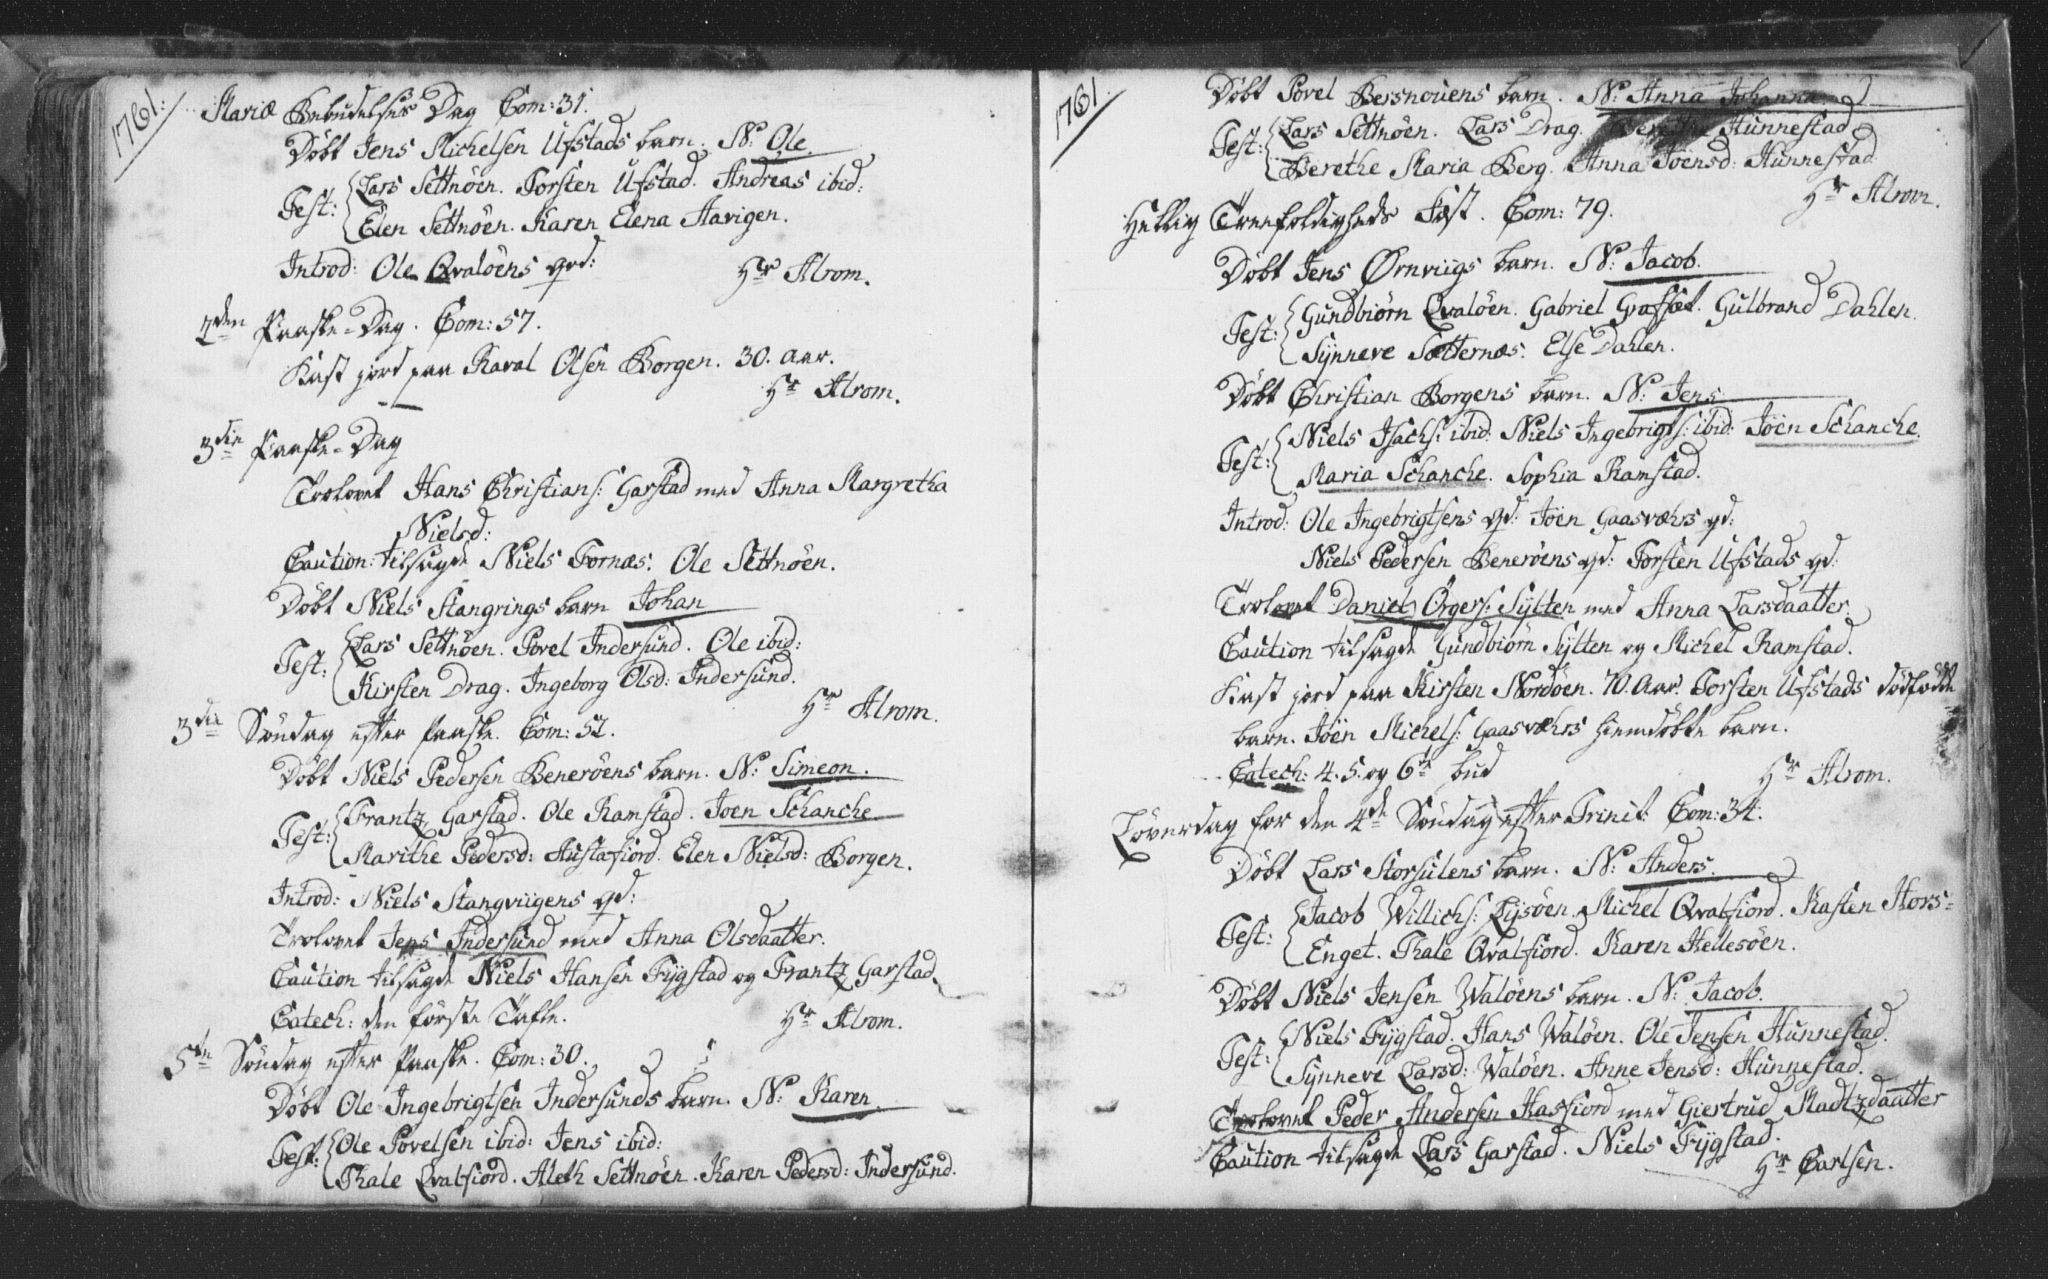 1761:
Mariæ Bebudelses Dag Com: 31.
Döbt Jens Michelsen Ufstads barn. N: Ole.
Test: Lars Settnöen. Torsten Ufstad. Andreas ibid:
Elen Settnöen. Karen Elena Aavigen.
Introd: Ole Qvalöens qvd:
Hr Alrom.
2den Paaske-Dag. Com: 57.
Kast jord paa Olsen Borgen. 30. aar.
Hr Alrom.
3die Paaske-Dag
Trolovet Hans Christians: Garstad med Anna Margretha
Nielsd:
Caution: tilsagde Niels Fornæs. Ole Settnöen.
Döbt Niels Stangrings barn Johan
Test: Lars Settnöen. Povel Indersund. Ole ibid:
Kirsten Drag. Ingeborg Olsd: Indersund.
Hr Alrom.
3die Söndag efter Paaske. Com: 52.
Döbt Niels Pedersen Beneröens barn. N: Simeon.
Test: Frantz Garstad. Ole Ramstad. Joen Schanche.
Marithe Pedersd: Austafiord. Elen Nielsd: Borgen.
Introd: Niels Stangviigens qd:
Trolovet Jens Indersund med Anna Olsdaatter.
Caution tilsagde Niels Hansen Fygstad og Frantz Garstad.
Catech: den förste Tafle.
Hr Alrom.
5te Söndag efter Paaske. Com: 30.
Döbt Ole Ingebrigtsen Indersunds barn. N: Karen.
Test: Ole Povelsen ibid: Jens ibid:
Thale Qvalfiord. Aleth Settnöen. Karen Pedersd: Indersund.
1761.
Döbt Povel Bersnouens barn. N: Anna Johanna.
Test: Lars Settnöen. Lars Drag. Hunnestad
Berethe Maria Berg. Anna Joensd: Hunnestad
Hr Alrom.
Hellig Treefoldigheds Fest. Com: 79.
Döbt Jens Ørnviigs barn. N: Jacob.
Test: Gundbiörn Qvalöen. Gabriel Græsset. Gulbrand Dahlen.
Synneve Sætternæs. Else Dahlen.
Döbt Christian Borgens barn. N: Jens.
Test: Niels Isachs: ibid: Niels Ingebrigts: ibid: Jöen Schanche.
Maria Schanche. Sophia Ramstad.
Introd: Ole Ingebrigtsens qd: Joen Gaasværs qd:
Niels Pedersen Beneröens qd: Torsten Ufstads qd:
Trolovet Daniel Örgers: Sylten med Anna Larsdaatter.
Caution tilsagde Gundbiörn Sylten og Michel Ramstad.
Kast jord paa Kirsten Nordöen. 70. Aar. Torsten Ufstads dödfödde
barn. Jöen Michels: Gaasværs hiemdöbte barn.
Catech: 4. 5. og 6te bud
Hr Alrom.
Löverdag for den 4de Söndag efter Trinit: Com: 34.
Döbt Lars Storsulens barn. N: Anders.
Test: Jacob Willichs: Lysöen. Michel Qvalfiord. Kasten Hors-
Enget. Thale Qvalfiord. Karen Hellesöen.
Döbt Niels Jensen Walöens barn. N: Jacob.
Test: Niels Fygstad. Hans Walöen. Ole Jensen Hunnestad.
Synneve Larsd: Walöen. Anne Jensd: Hunnestad.
Trolovet Peder Andersen Hasfiord med Giertrud Madtzdaatter
Caution tilsagde Lars Garstad. Niels Fygstad.
Hr Carlsen.